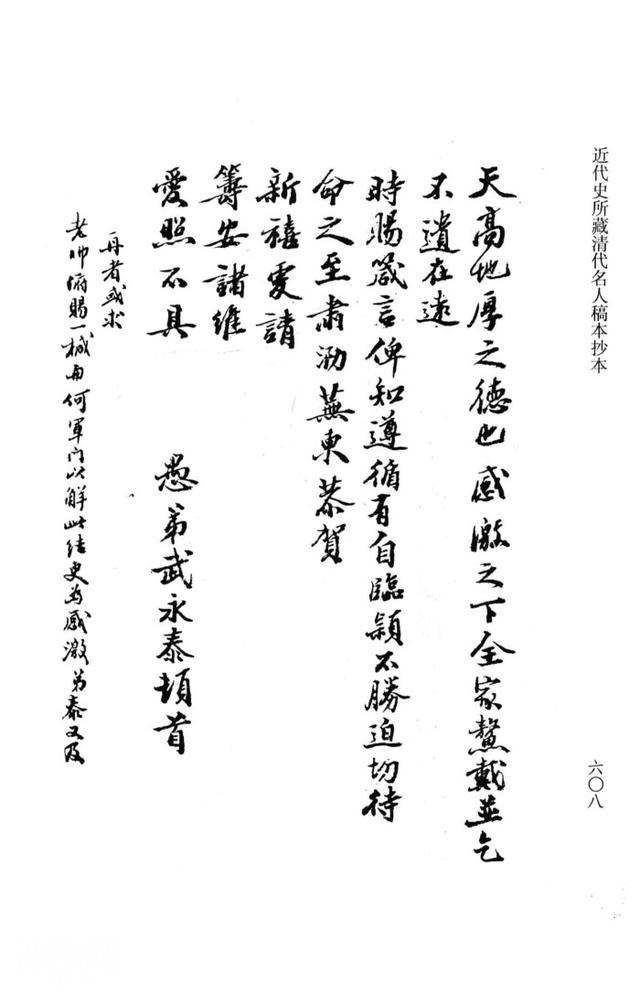 近代史所藏清代名人稿本抄本
天高地厚之德也感激之下全家鰲戴並乞
不遺在遠
時賜箴言俾知遵循有自臨穎不勝迫切待
命之至肅泐蕪柬恭賀
新禧虔請
籌安諸維
愛照不具
愚弟武永泰頓首
再者或求
老帥俯賜一椷與何軍門以解此結更為感激弟泰又及
六〇八